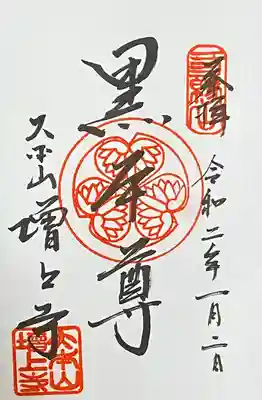 奉拝
令和二年一月二日
黒本尊
大本山
増上寺
大本山
増上寺